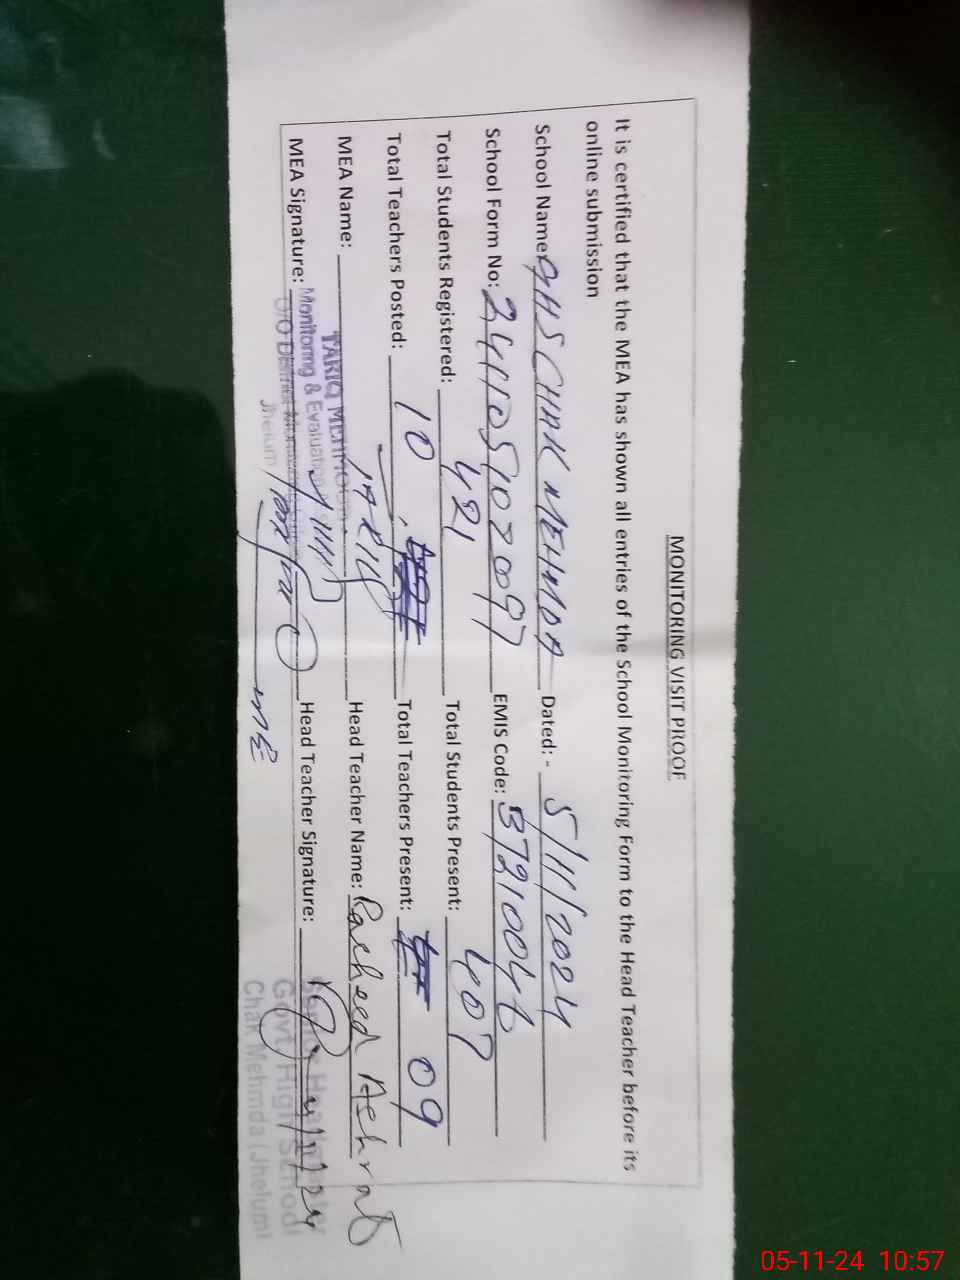 MONITORING VISIT PROOF
It is certified that the MEA has shown all entries of the School Monitoring Form to the Head Teacher before its
online submission
School Name: GHS CHAK MEHMDA Dated: - 5/11/2024
School Form No: 2441051020097 EMIS Code: 37210046
Total Students Registered: 421 Total Students Present: 407
Total Teachers Posted: 10 Total Teachers Present: 09
MEA Name: TARIQ Head Teacher Name: Racheed Ashraf
TARIQ MEHMOOD
Monitoring & Evaluation
MEA Signature: Head Teacher Signature:
O/O District Monitoring
Jhelum
Senior Headmaster
Govt. High School
Chak Mehmda (Jhelum)
05-11-24 10:57